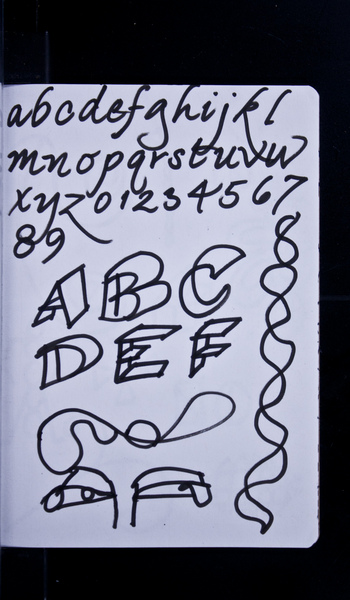 abcdefghijkl
mnopqrstuvw
xyz01234567
89
ABC
DEF